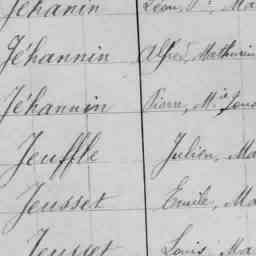 Jéhanin Léon, P. Ma
Jéhannin Alfred, Mathurin
Jéhannin Pierre, M.
Jeuffle Julien, Ma
Jeusset Emile, Ma
Jeusset Louis, Ma